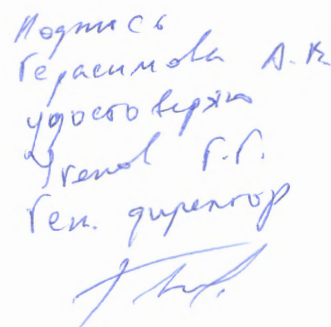 Подпись
Герасимова А.К
удостоверяю
Ген. директор